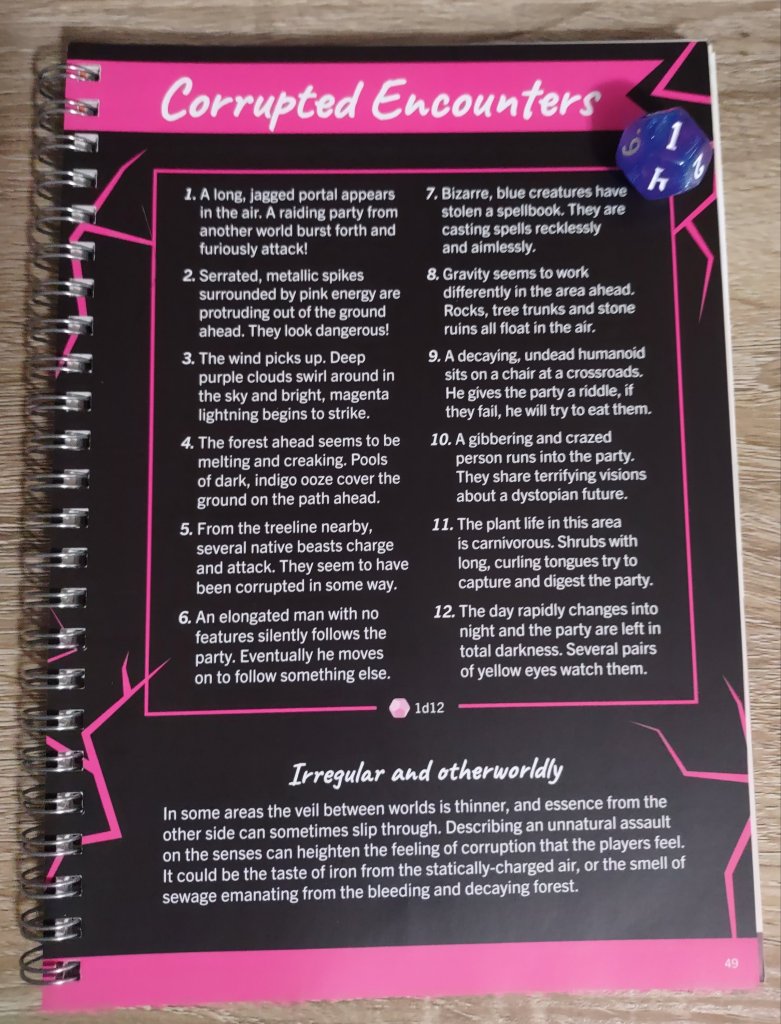 Corrupted Encounters
1
6.
2
4
1. A long, jagged portal appears
in the air. A raiding party from
another world burst forth and
furiously attack!
2. Serrated, metallic spikes
surrounded by pink energy are
protruding out of the ground
ahead. They look dangerous!
3. The wind picks up. Deep
purple clouds swirl around in
the sky and bright, magenta
lightning begins to strike.
4. The forest ahead seems to be
melting and creaking. Pools
of dark, indigo ooze cover the
ground on the path ahead.
5. From the treeline nearby,
several native beasts charge
and attack. They seem to have
been corrupted in some way.
6. An elongated man with no
features silently follows the
party. Eventually he moves
on to follow something else.
7. Bizarre, blue creatures have
stolen a spellbook. They are
casting spells recklessly
and aimlessly.
8. Gravity seems to work
differently in the area ahead.
Rocks, tree trunks and stone
ruins all float in the air.
9. A decaying, undead humanoid
sits on a chair at a crossroads.
He gives the party a riddle, if
they fail, he will try to eat them.
10. A gibbering and crazed
person runs into the party.
They share terrifying visions
about a dystopian future.
11. The plant life in this area
is carnivorous. Shrubs with
long, curling tongues try to
capture and digest the party.
12. The day rapidly changes into
night and the party are left in
total darkness. Several pairs
of yellow eyes watch them.
1d12
Irregular and otherworldly
In some areas the veil between worlds is thinner, and essence from the
other side can sometimes slip through. Describing an unnatural assault
on the senses can heighten the feeling of corruption that the players feel.
It could be the taste of iron from the statically-charged air, or the smell of
sewage emanating from the bleeding and decaying forest.
49